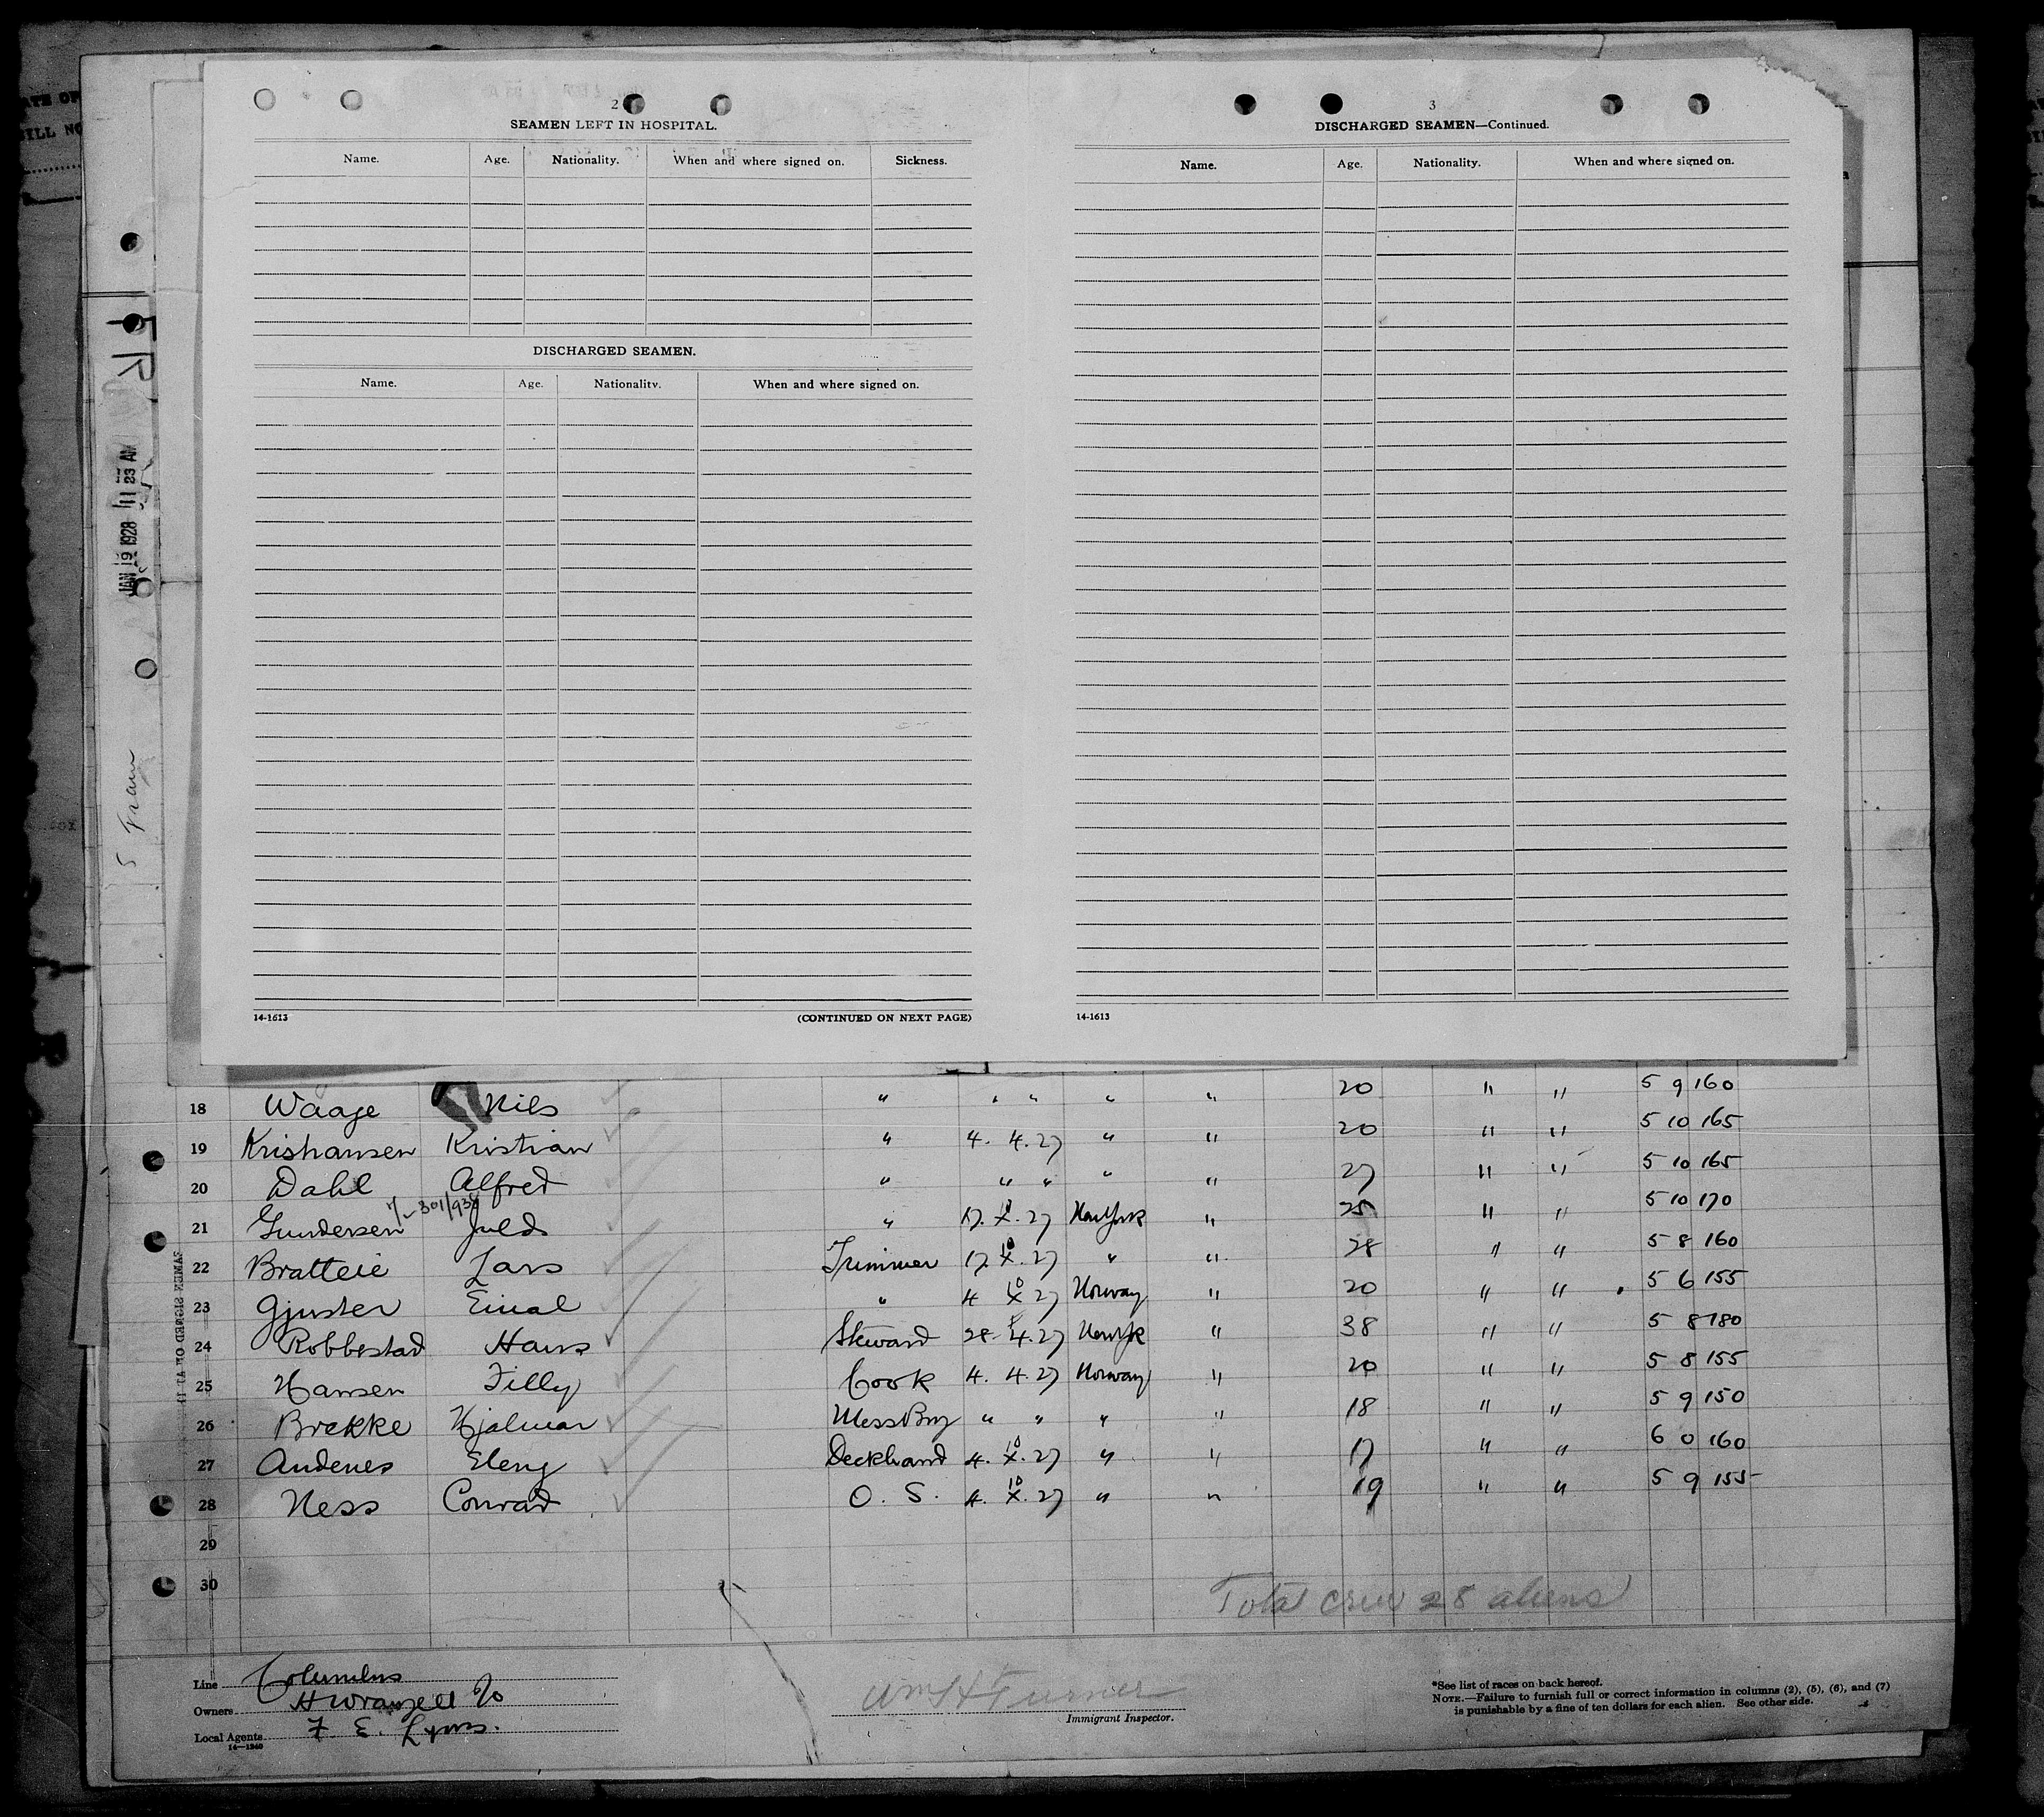 2
SEAMEN LEFT IN HOSPITAL.
Name. Age. Nationality. When and where signed on. Sickness.
DISCHARGED SEAMEN.
Name. Age. Nationality. When and where signed on.
14-1613 (CONTINUED ON NEXT PAGE)
3
DISCHARGED SEAMEN—Continued.
Name. Age. Nationality. When and where signed on.
14-1613
JAN 19 1928 11 23 AM
18 Waage Nils " " " " " 20 " " 5 9 160
19 Kristiansen Kristian " 4. 4. 27 " " 20 " " 5 10 165
20 Dahl Alfred " " " " " 27 " " 5 10 165
21 Gundersen " 17. X. 27 New York " 25 " " 5 10 170
22 Bratteie Lars Trimmer 17 X. 27 " " 28 " " 5 8 160
23 Gjuster Einal " 4 X 27 Norway " 20 " " 5 6 155
24 Robbestad Hans Steward 28 4. 27 New Yk " 38 " " 5 8 180
25 Hansen Tilly Cook 4. 4. 27 Norway " 20 " " 5 8 155
26 Brekke Hjalmar Mess Boy " " " " 18 " " 5 9 150
27 Andenes Eleng Deckhand 4. X. 27 " " 17 " " 6 0 160
28 Ness Conrad O. S. 4. X. 27 " " 19 " " 5 9 155
29
30
Total crew 28 aliens
Line Columbus
Owners H Wrangell Co
Local Agents F. E. Lyons.
14—1240
Wm H Turner
Immigrant Inspector.
*See list of races on back hereof.
NOTE.—Failure to furnish full or correct information in columns (2), (5), (6), and (7)
is punishable by a fine of ten dollars for each alien. See other side.